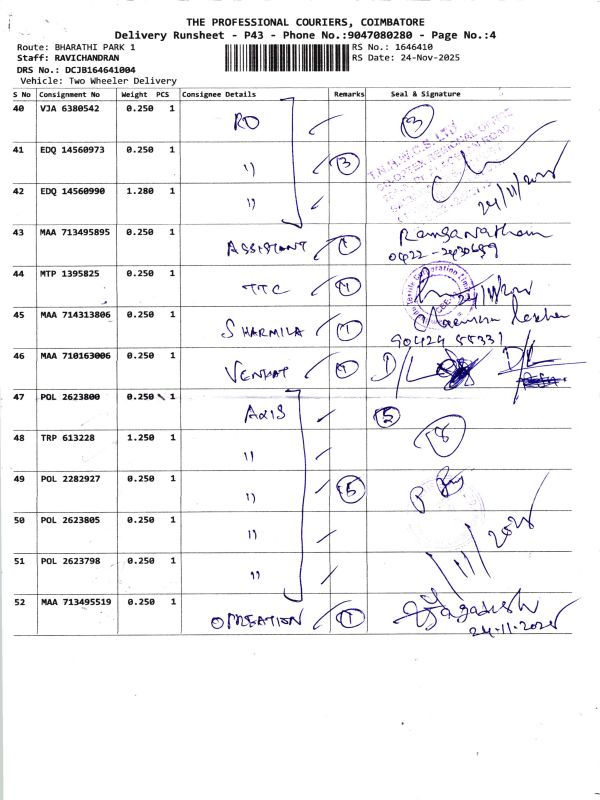 THE PROFESSIONAL COURIERS, COIMBATORE
Delivery Runsheet - P43 - Phone No.:9047080280 - Page No.:4
Route: BHARATHI PARK 1 RS No.: 1646410
Staff: RAVICHANDRAN RS Date: 24-Nov-2025
DRS No.: DCJB164641004
Vehicle: Two Wheeler Delivery
S No Consignment No Weight PCS Consignee Details Remarks Seal & Signature
40 VJA 6380542 0.250 1 RO 3
41 EDQ 14560973 0.250 1 11 3
42 EDQ 14560990 1.280 1 11 24/11/2025
43 MAA 713495895 0.250 1 ASSISTONT 1 Ranganatham
0422-2430659
44 MTP 1395825 0.250 1 TTC 1
45 MAA 714313806 0.250 1 SHARMILA 1
90424 55331
46 MAA 710163006 0.250 1 VENKAT 1 D/L D/L
47 POL 2623800 0.250 1 Axis 5
48 TRP 613228 1.250 1 11
49 POL 2282927 0.250 1 11 5
50 POL 2623805 0.250 1 11
51 POL 2623798 0.250 1 11
52 MAA 713495519 0.250 1 OPREATION 1 Jagadish
24.11.2025